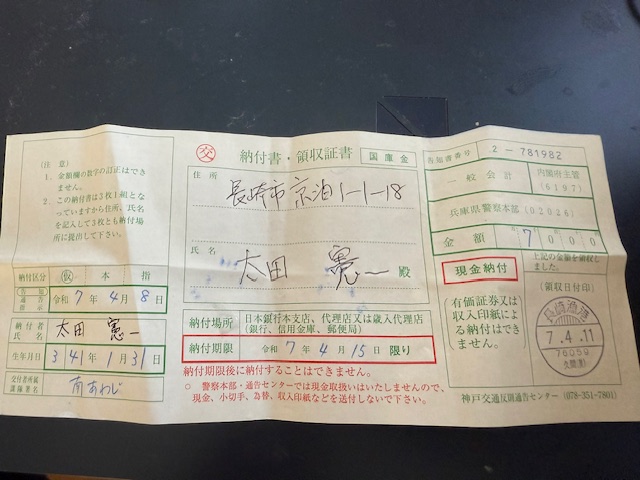 (注意)
1. 金額欄の数字の訂正はできません。
2. この納付書は3枚1組となっていますから住所、氏名を記入して3枚とも納付場所に提出して下さい。
納付区分 仮 本 指
告知 通告 年月日 令和 7 年 4 月 8 日
納付者氏名 太田 憲一
生年月日 3 41 年 1 月 31 日
交付者所属 南あわじ
交 納付書・領収証書 国庫金
住所
長崎市京泊1-1-18
氏名
太田 憲一 殿
納付場所 日本銀行本支店、代理店又は歳入代理店
(銀行、信用金庫、郵便局)
納付期限 令和 7 年 4 月 15 日 限り
納付期限後に納付することはできません。
○ 警察本部・通告センターでは現金取扱いはいたしませんので、
現金、小切手、為替、収入印紙などを送付しないで下さい。
告知書番号 2-781982
一般会計 内閣府主管
(6197)
兵庫県警察本部 (02028)
金額 7000
現金納付
有価証券又は
収入印紙による
納付はできません。
上記の金額を領収しました。
(領収日付印)
7.4.11
76059
神戸交通反則通告センター (078-351-7801)